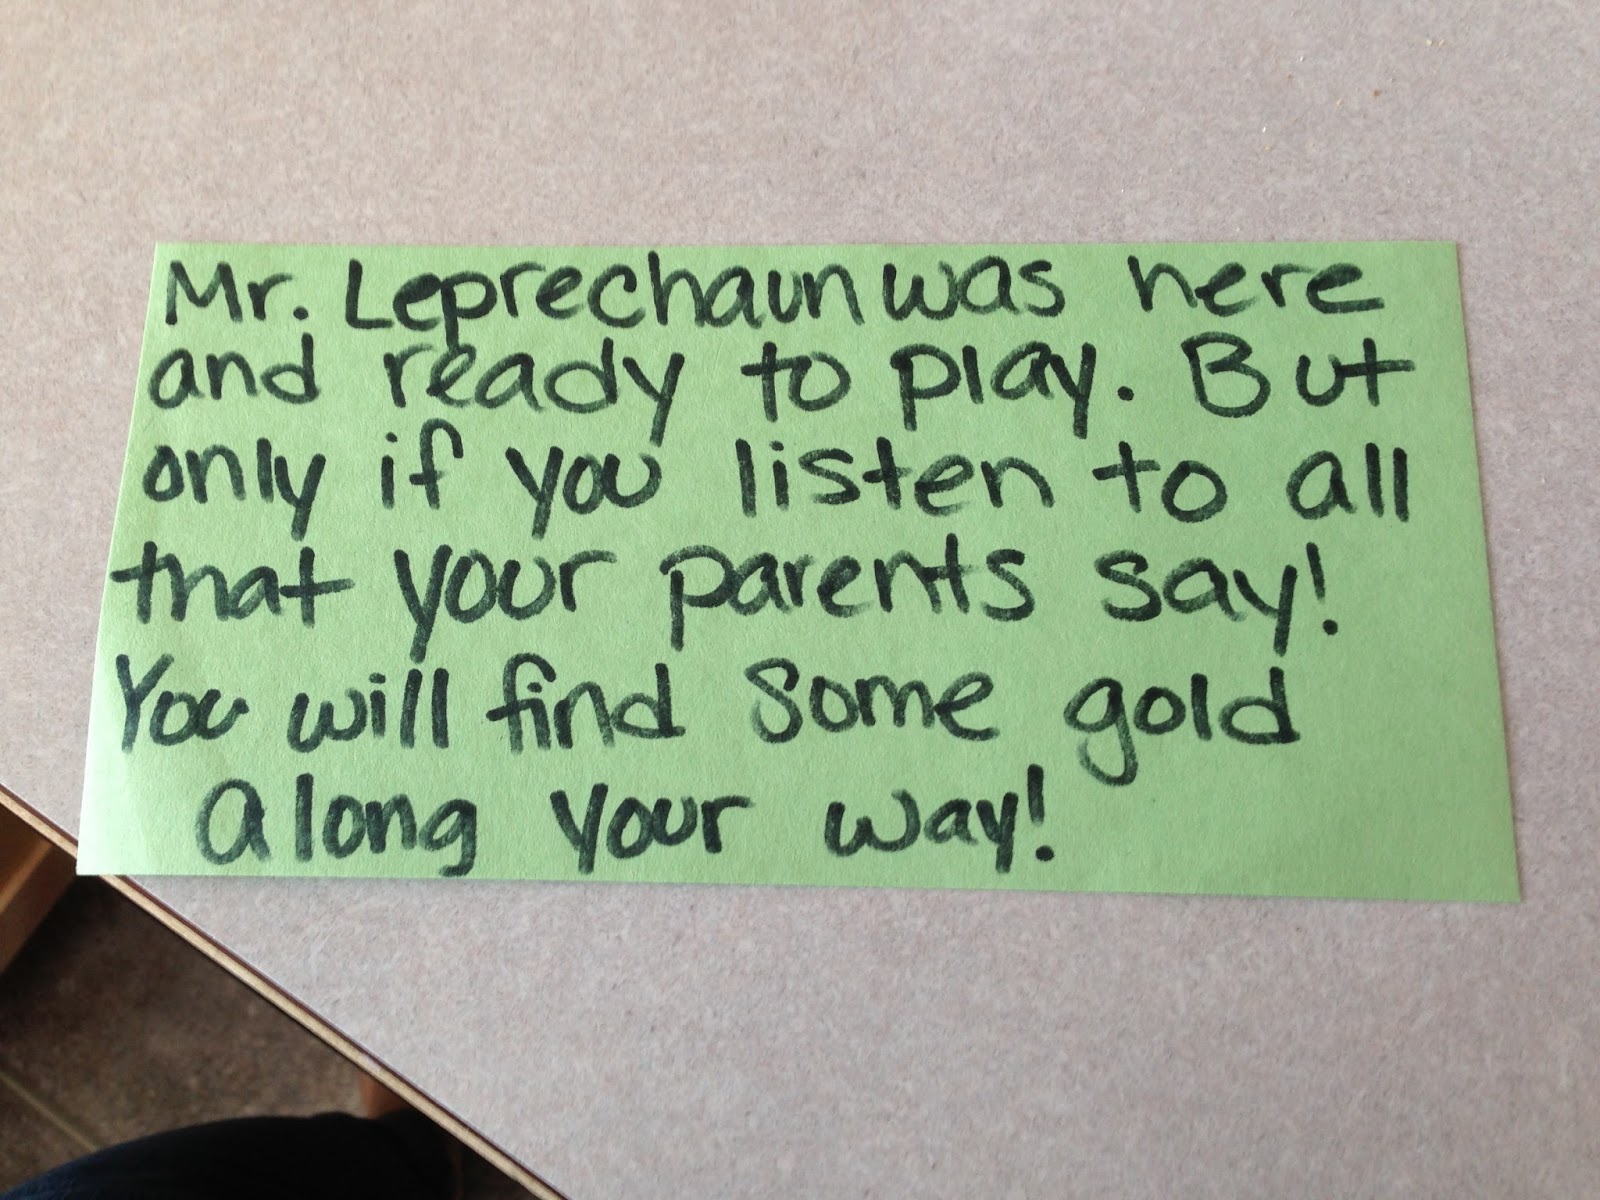 Mr. Leprechaun was here
and ready to play. But
only if you listen to all
that your parents say!
You will find some gold
along your way!